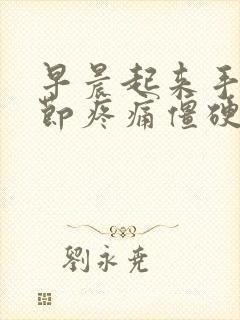 早晨起来手
节疼痛僵硬
劉永尧